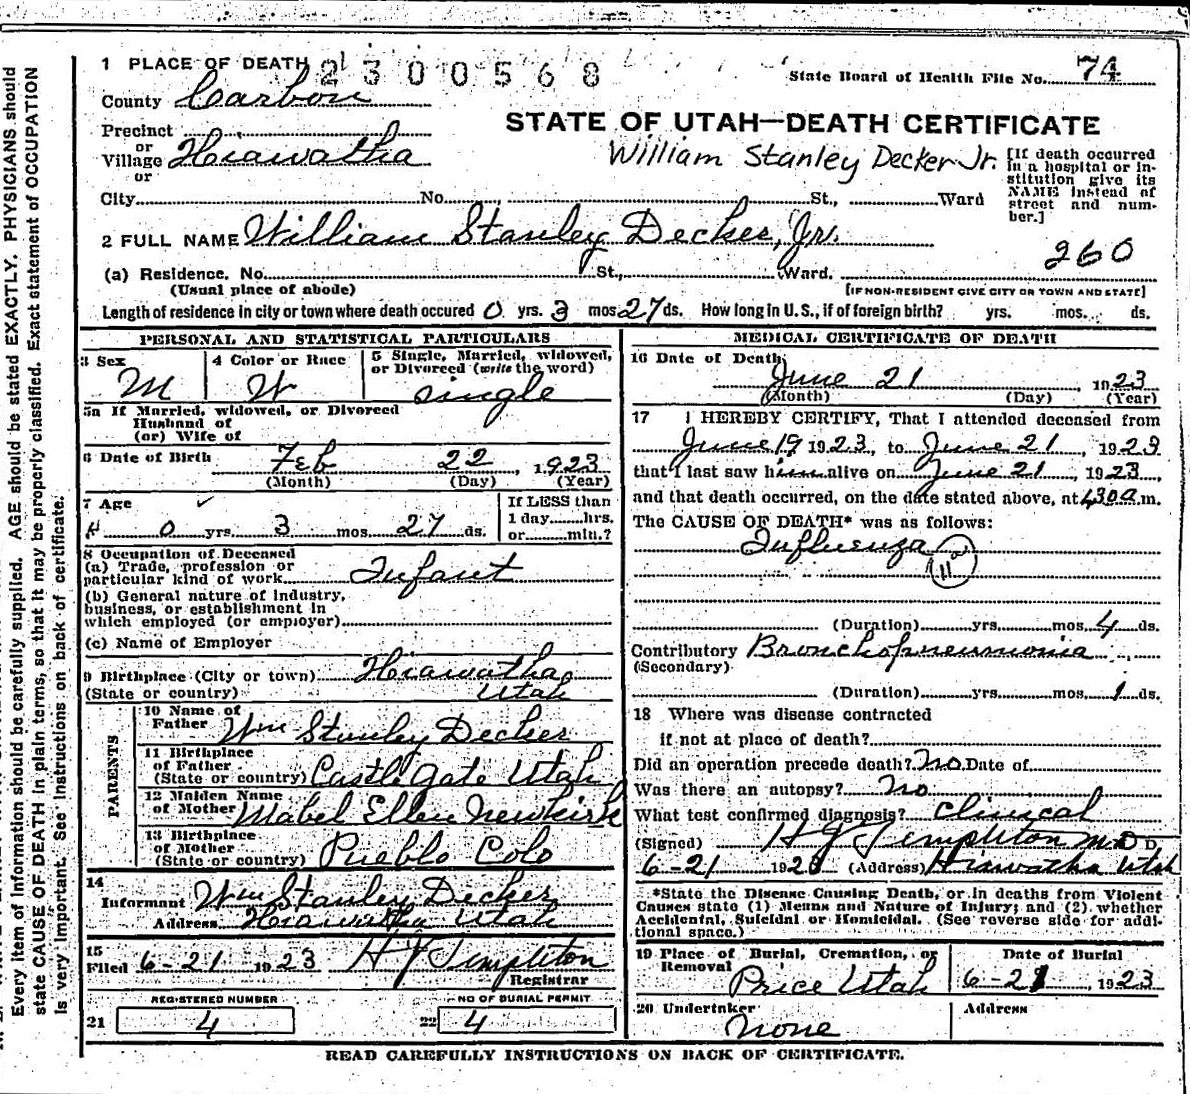 1 PLACE OF DEATH 2300568
State Board of Health File No. 74
County Carbon
STATE OF UTAH—DEATH CERTIFICATE
Precinct
or
Village Hiawatha
or
William Stanley Decker Jr.
[If death occurred in a hospital or institution give its NAME instead of street and number.]
City No. St., Ward
2 FULL NAME William Stanley Decker, Jr.
260
(a) Residence. No. St., Ward.
(Usual place of abode)
[IF NON-RESIDENT GIVE CITY OR TOWN AND STATE]
Length of residence in city or town where death occured 0 yrs. 3 mos 27 ds. How long in U. S., if of foreign birth? yrs. mos. ds.
PERSONAL AND STATISTICAL PARTICULARS
3 Sex M
4 Color or Race W
5 Single, Married, widowed, or Divorced (write the word)
single
5a If Married, widowed, or Divorced
Husband of
(or) Wife of
6 Date of Birth Feb 22, 1923
(Month) (Day) (Year)
7 Age
0 yrs. 3 mos. 27 ds.
If LESS than
1 day hrs.
or min.?
8 Occupation of Deceased
(a) Trade, profession or
particular kind of work Infant
(b) General nature of industry,
business, or establishment in
which employed (or employer)
(c) Name of Employer
9 Birthplace (City or town) Hiawatha
(State or country) Utah
PARENTS
10 Name of
Father Wm Stanley Decker
11 Birthplace
of Father
(State or country) Castle Gate Utah
12 Maiden Name
of Mother Mabel Ellen Newkirk
13 Birthplace
of Mother
(State or country) Pueblo Colo
14
Informant Wm Stanley Decker
Address Hiawatha Utah
15
Filed 6-21 1923 H J Templeton
Registrar
REGISTERED NUMBER
21 4
NO OF BURIAL PERMIT
22 4
MEDICAL CERTIFICATE OF DEATH
16 Date of Death
June 21, 1923
(Month) (Day) (Year)
17 I HEREBY CERTIFY, That I attended deceased from
June 19 1923, to June 21, 1923
that I last saw him alive on June 21, 1923,
and that death occurred, on the date stated above, at 430a m.
The CAUSE OF DEATH* was as follows:
Influenza
11
(Duration) yrs. mos. 4 ds.
Contributory Bronchopneumonia
(Secondary)
(Duration) yrs. mos. 1 ds.
18 Where was disease contracted
if not at place of death?
Did an operation precede death? No Date of
Was there an autopsy? No
What test confirmed diagnosis? Clinical
(Signed) H J Templeton M.D. D.
6-21 1923 (Address) Hiawatha Utah
*State the Disease Causing Death, or in deaths from Violent
Causes state (1) Means and Nature of Injury; and (2) whether
Accidental, Suicidal or Homicidal. (See reverse side for addi-
tional space.)
19 Place of Burial, Cremation, or
Removal
Price Utah
Date of Burial
6-21, 1923
20 Undertaker
none
Address
READ CAREFULLY INSTRUCTIONS ON BACK OF CERTIFICATE.
Every item of information should be carefully supplied. AGE should be stated EXACTLY. PHYSICIANS should
state CAUSE OF DEATH in plain terms, so that it may be properly classified. Exact statement of OCCUPATION
is very important. See instructions on back of certificate.